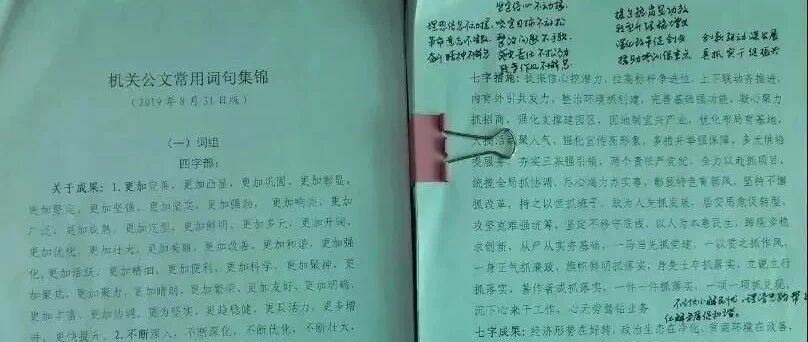 机关公文常用词句集锦
（2019年8月31日版）
（一）词组
四字部：
关于成果：1.更加完善，更加凸显，更加巩固，更加彰显，
更加坚定，更加坚强，更加坚实，更加强劲，更加响亮，更加
广泛，更加成熟，更加定型，更加鲜明，更加多元，更加开阔，
更加优化，更加壮大，更加美丽，更加改善，更加和谐，更加强
化，更加活跃，更加精细，更加便利，更加科学，更加凝神，更
加聚焦，更加聚力，更加晴朗，更加繁荣，更加友好，更加明确，
更加丰富，更加协调，更为坚实，更趋稳健，更具活力，更多增
进，更快提升。2.不断深入，不断深化，不断优化，不断壮大，
理想信念不动摇
革命意志不涣散
奋斗精神不懈怠
七字措施：抓来信心挖潜力，拉高标杆争进位，上下联动齐推进，
内育外引共发力，整治环境抓创建，完善基础强功能，凝心聚力
抓招商，强化支撑建园区，因地制宜兴产业，优化布局育基地，
聚人气，强化宣传亮形象，多措并举强保障，多元供给
夯实三基强引领，两个责任严党纪，全力以赴抓项目，
统揽全局抓协调，尽心竭力办实事，彰显特色育新风，坚持不懈
抓改革，持之以恒抓班子，敢为人先抓发展，居安思危促转型，
攻坚克难强统筹，坚定不移守底线，以人为本惠民生，蹄疾步稳
求创新，从严从实夯基础，一马当先抓党建，一以贯之抓作风，
一身正气抓廉政，旗帜鲜明抓落实，身先士卒抓落实，立说立行
抓落实，善作善成抓落实，一件一件抓落实，一项一项抓兑现，
沉下心来干工作，心无旁骛钻业务
化解矛盾促和谐。
七字成果：经济形势在好转，政治生态在净化，发展环境在改善，